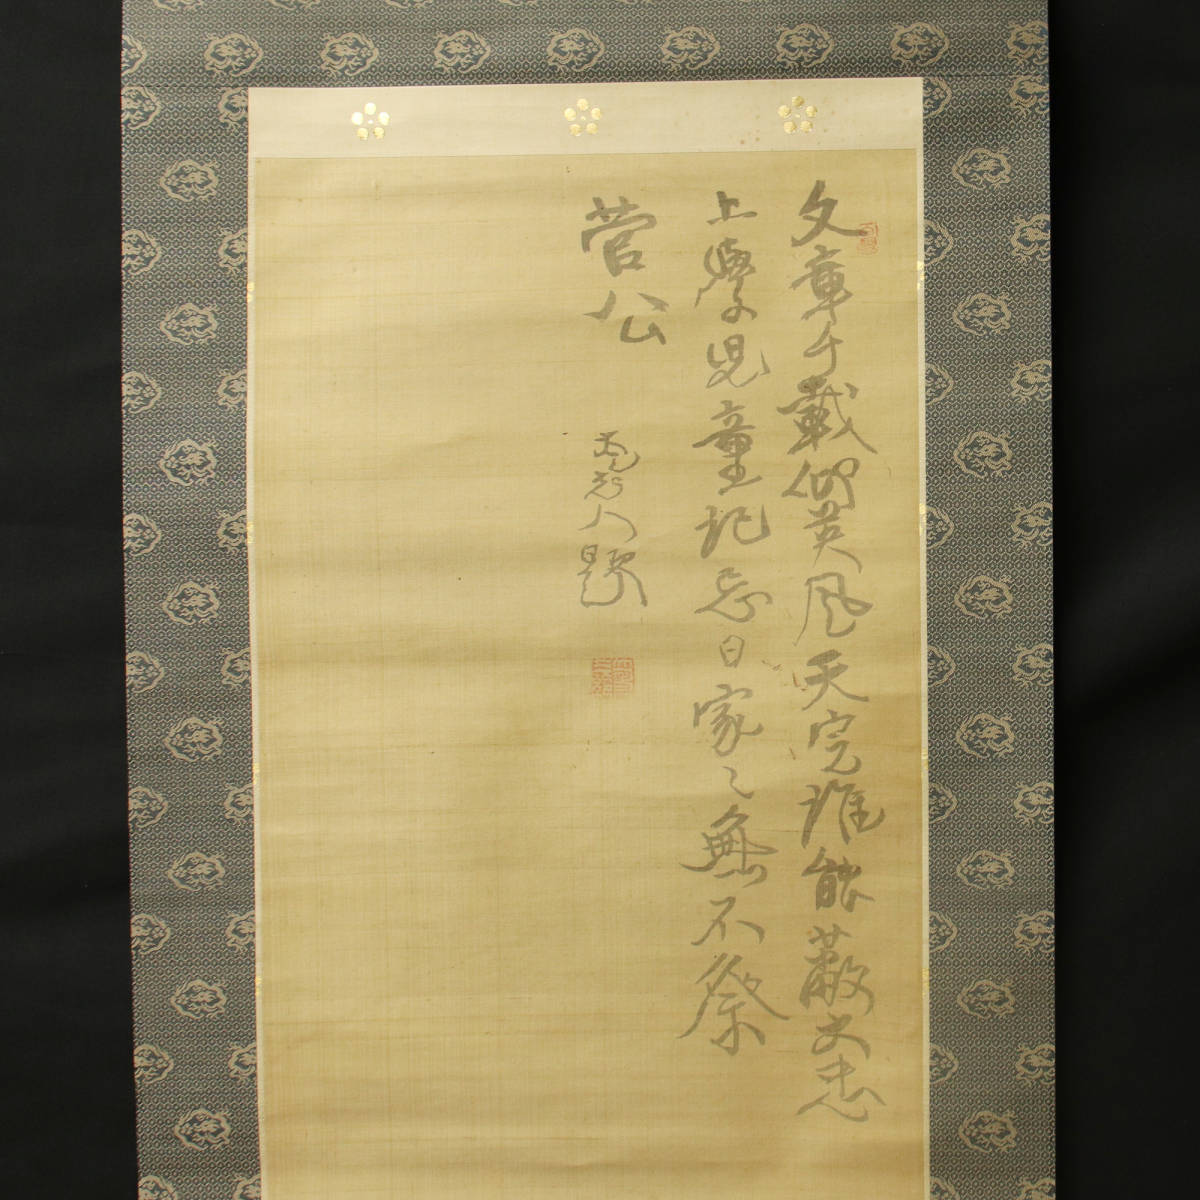 文章千載仰英風天定誰能蔽大忠
上學児童祀忘日家々無不祭
菅公
人題